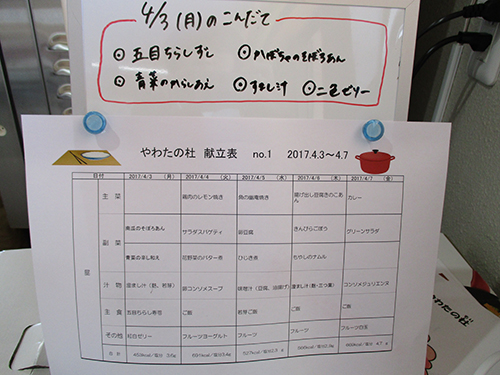 4/3(月)のこんだて
◎五目ちらしずし ◎かぼちゃのそぼろあん
◎青菜のからしあえ ◎すまし汁 ◎二色ゼリー
やわたの杜 献立表 no.1 2017.4.3～4.7
日付 2017/4/3 (月) 2017/4/4 (火) 2017/4/5 (水) 2017/4/6 (木) 2017/4/7 (金)
主菜 鶏肉のレモン焼き 魚の幽庵焼き 揚げ出し豆腐きのこあん カレー
副菜 南瓜のそぼろあん サラダスパゲティ 新豆腐 きんぴらごぼう グリーンサラダ
青菜の辛し和え 花野菜のバター煮 ひじき煮 もやしのナムル
昼
汁物 澄まし汁(麩、若芽) 卵コンソメスープ 味噌汁(豆腐、油揚げ) 澄まし汁(麩・三つ葉) コンソメジュリエンヌ
主食 五目ちらし寿司 ご飯 若芽ご飯 ご飯 ご飯
その他 紅白ゼリー フルーツヨーグルト フルーツ フルーツ フルーツ白玉
合計
やわたの杜